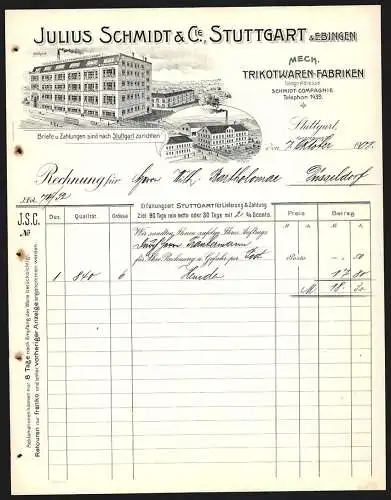 JULIUS SCHMIDT & CIE, STUTTGART & EBINGEN
MECH.
TRIKOTWAREN-FABRIKEN
Telegr.-Adresse:
SCHMIDT-COMPAGNIE
Telephon 1439.
Briefe u. Zahlungen sind nach Stuttgart zu richten
Stuttgart,
den 7. Oktober 1901.
Rechnung für Herrn Wilh. Bartholomae Düsseldorf
Erfüllungsort STUTTGART für Lieferung & Zahlung
J.S.C.
Dtz. Qualität. Grösse Ziel 90 Tage rein netto oder 30 Tage mit 2 % Sconto. Preis Betrag
№
Wir sandten Ihnen zufolge Ihres Auftrags
für Ihre Rechnung u. Gefahr per Post Porto 50
1 840 6 Hemde 17 80
M 18 30
Reklamationen können nur 8 Tage nach Empfang der Ware berücksichtigt,
Retouren nur franko und unter vorheriger Anzeige angenommen werden.